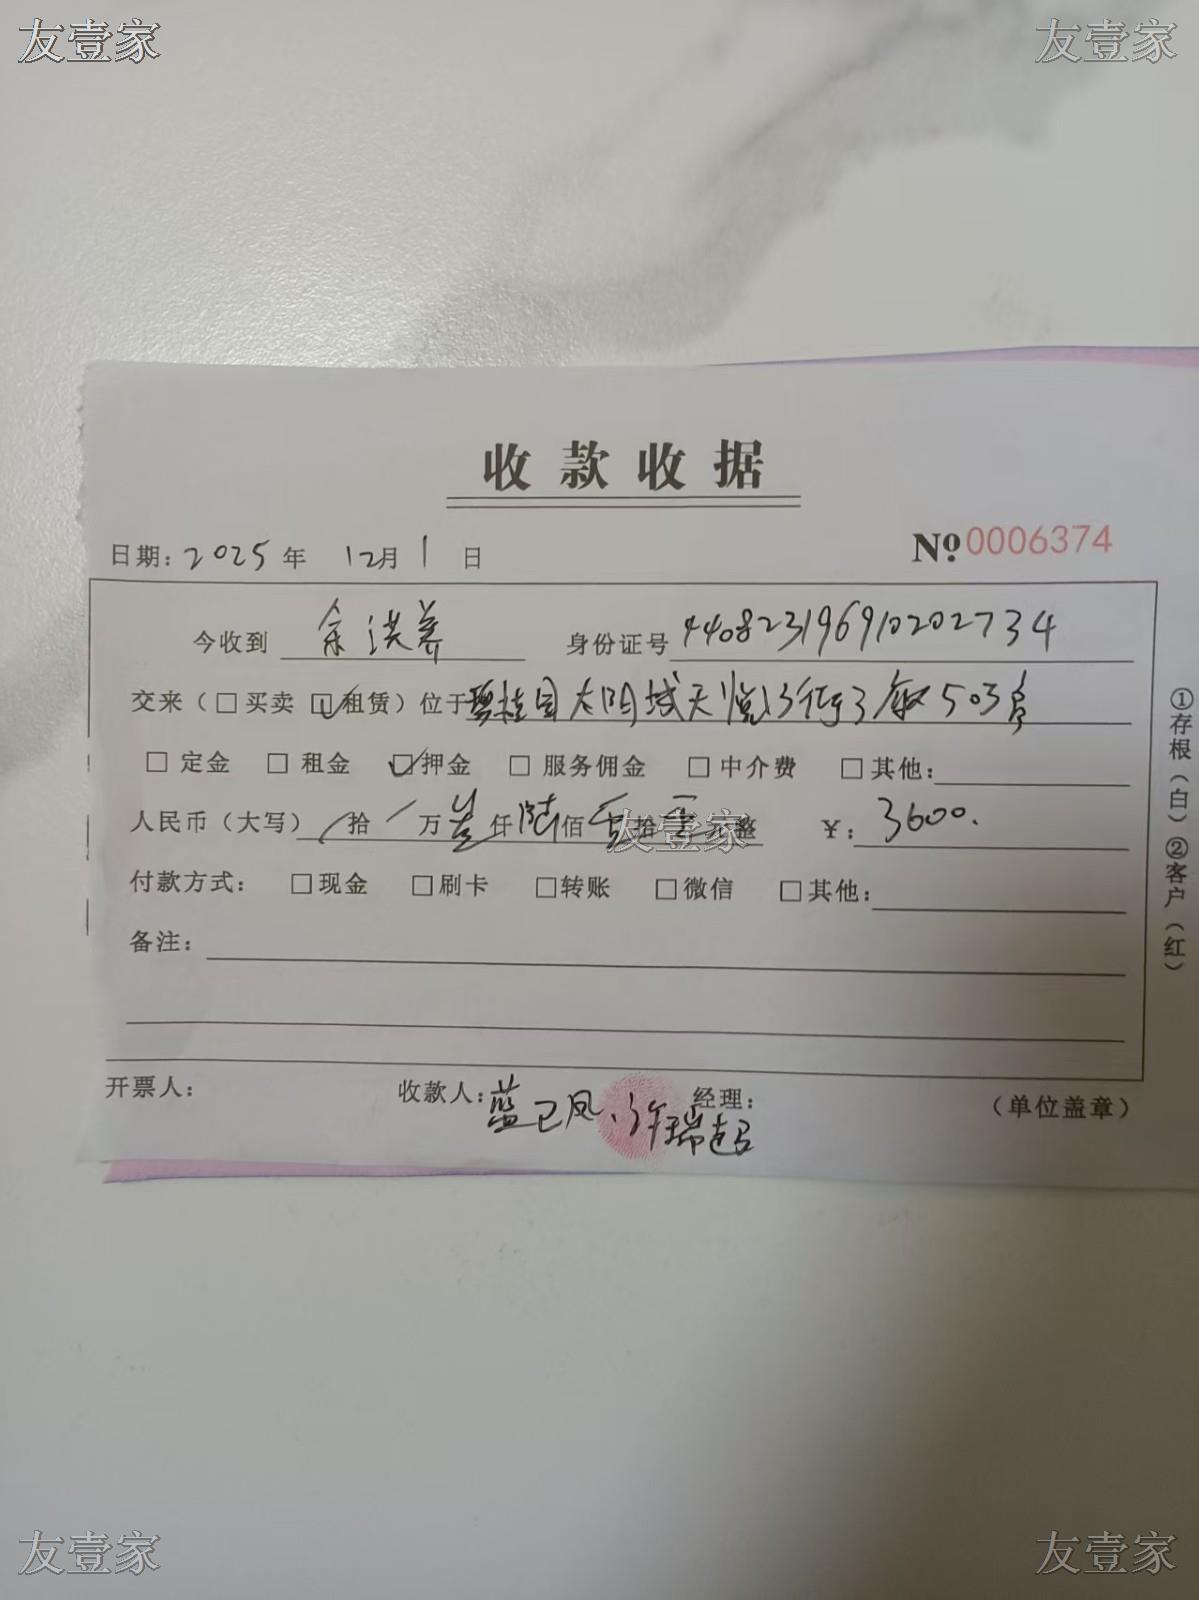 友壹家 友壹家
收款收据
日期：2025年 12月1日 №0006374
今收到 余洪养 身份证号 440823196910202734
交来（□买卖 ☑租赁）位于碧桂园太阳城天悦13街3座503房
□ 定金 □ 租金 ☑押金 □ 服务佣金 □ 中介费 □ 其他：
人民币（大写） / 拾 / 万 叁 仟 陆 佰 零 拾 零 元整 ￥：3600.
友壹家
付款方式： □现金 □刷卡 □转账 □微信 □其他：
备注：
开票人： 收款人：蓝卫凤、许瑞超 经理： （单位盖章）
①存根（白）②客户（红）
友壹家 友壹家